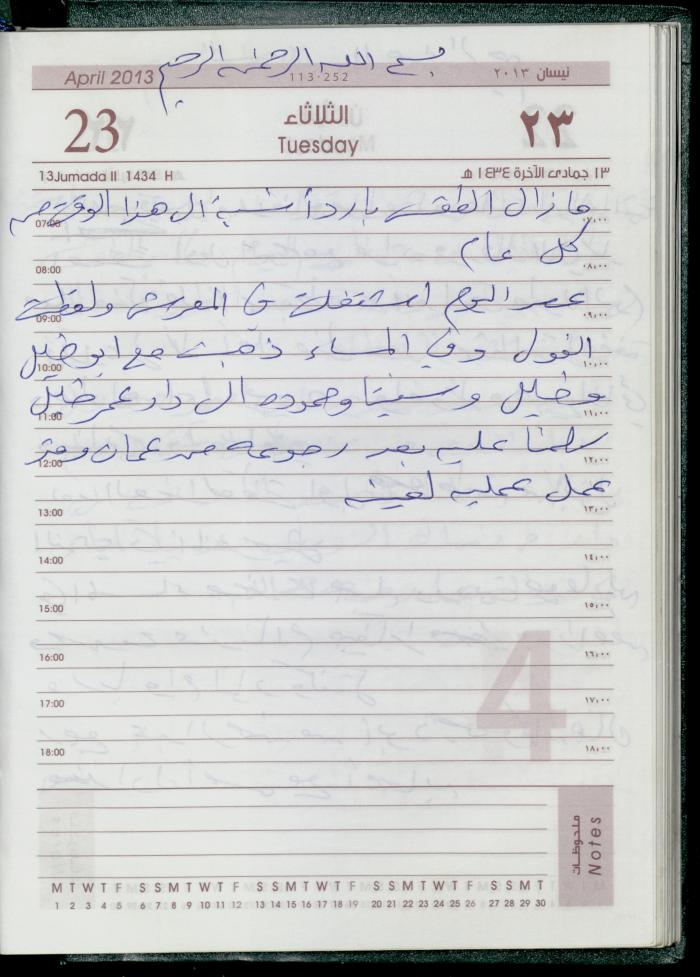 بسم الله الرحمن الرحيم
April 2013
113-252
نيسان ٢٠١٣
23
الثلاثاء
Tuesday
٢٣
13 Jumada II 1434 H
١٣ جمادى الآخرة ١٤٣٤ هـ
ما زال الطقس بارداً نسبة ال هذا الوقت من
07:00 ٠٧,٠٠
كل عام
08:00 ٠٨,٠٠
عصر اليوم اشتغلت في المعرش ولقطت
09:00 ٠٩,٠٠
الفول وفي المساء ذهبت مع ابو خليل
10:00 ١٠,٠٠
وخليل وسنيتا وحموده ال دار عمر خليل
11:00 ١١,٠٠
سلمنا عليه بعد رجوعه من عمان وقد
12:00 ١٢,٠٠
عمل عمليه لعينه
13:00 ١٣,٠٠
14:00 ١٤,٠٠
15:00 ١٥,٠٠
16:00 ١٦,٠٠
17:00 ١٧,٠٠
18:00 ١٨,٠٠
4
ملحوظات
Notes
M T W T F S S M T W T F S S M T W T F S S M T W T F S S M T
1 2 3 4 5 6 7 8 9 10 11 12 13 14 15 16 17 18 19 20 21 22 23 24 25 26 27 28 29 30